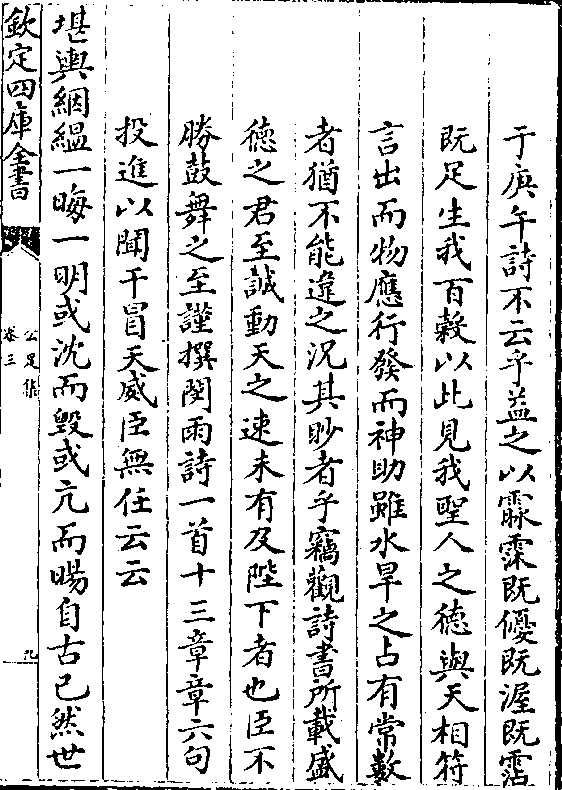 于庚午詩不云乎益之以霡霂既優既渥既霑
既足生我百穀以此見我聖人之德與天相符
言出而物應行發而神助雖水旱之占有常數
者猶不能違之況其眇者乎竊觀詩書所載盛
德之君至誠動天之速未有及陛下者也臣不
勝鼓舞之至謹撰閔雨詩一首十三章章六句
投進以聞干冒天威臣無任云云
堪輿絪縕一晦一明或沈而毀或亢而暘自古已然世
欽定四庫全書
公是集
卷三
九